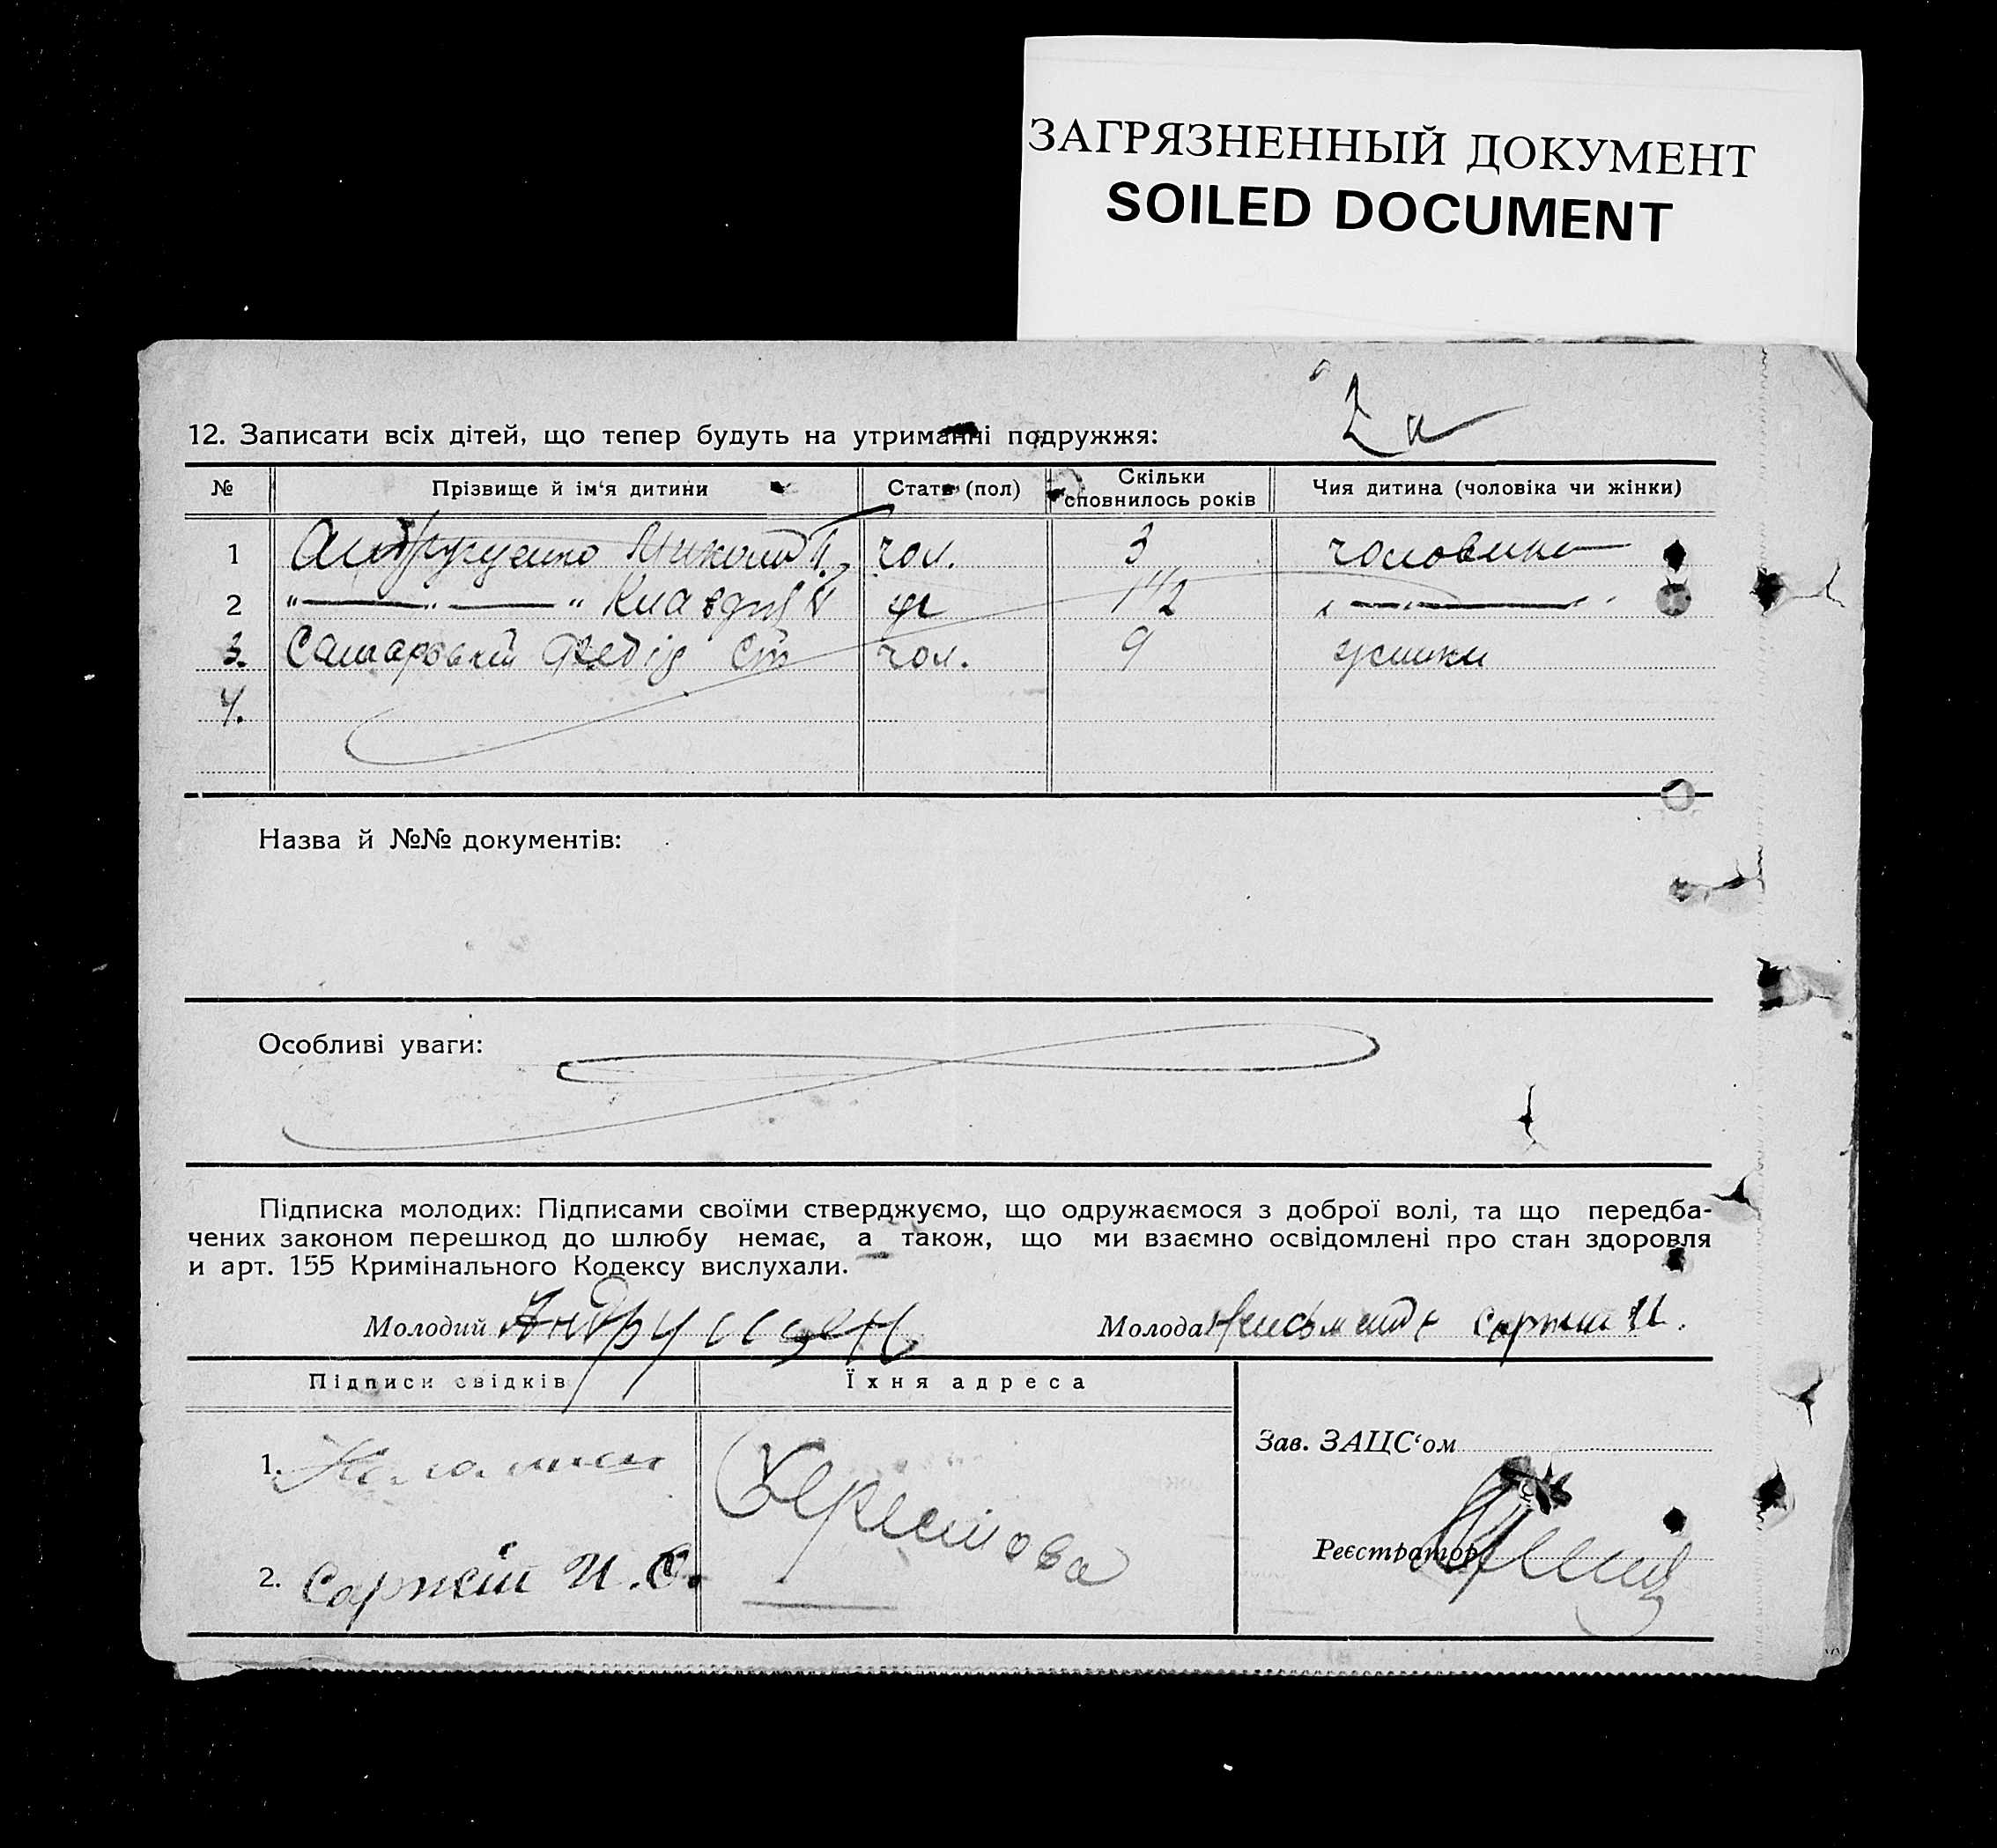 ЗАГРЯЗНЕННЫЙ ДОКУМЕНТ
SOILED DOCUMENT
12. Записати всіх дітей, що тепер будуть на утриманні подружжя:
№ Прізвище й ім‘я дитини Стать (пол) Скільки сповнилось років Чия дитина (чоловіка чи жінки)
1 Микола чол. 3 чоловика
2 " — " — " 1 1/2 " — " — "
3. Самарский Федір чол. 9 жинки
4.
Назва й №№ документів:
Особливі уваги:
Підписка молодих: Підписами своїми стверджуємо, що одружаємося з доброї волі, та що передба-
чених законом перешкод до шлюбу немає, а також, що ми взаємно освідомлені про стан здоровля
и арт. 155 Кримінального Кодексу вислухали.
Молодий Андрущен Молода
Підписи свідків Їхня адреса
Зав. ЗАЦС‘ом
1.
Реєстратор
2. И. С.